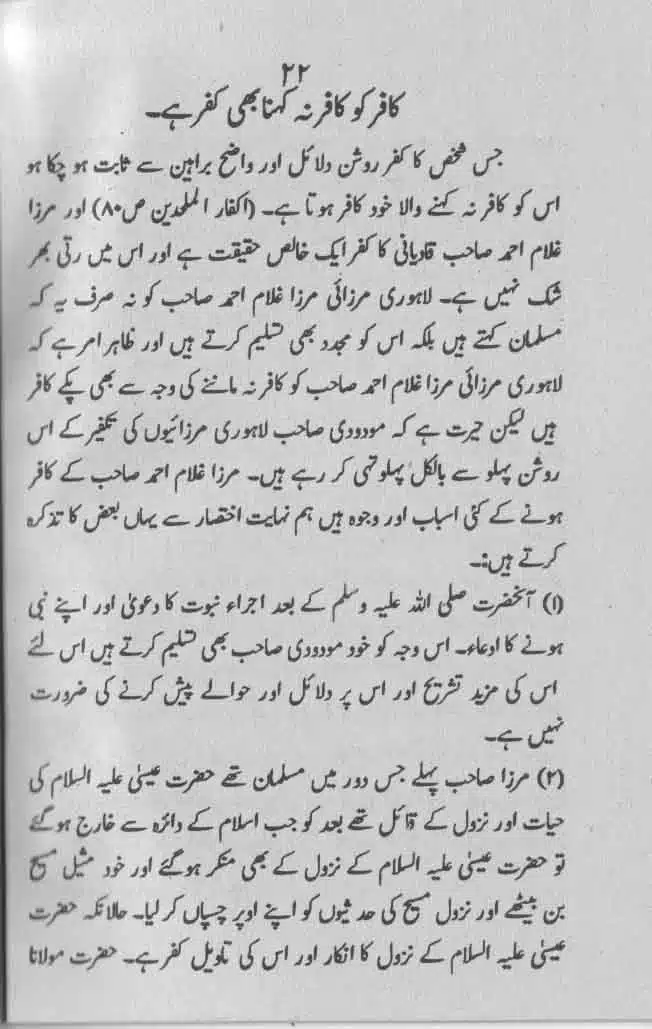 ۲۲
کافر کو کافر نہ کہنا بھی کفر ہے۔
جس شخص کا کفر روشن دلائل اور واضح براہین سے ثابت ہو چکا ہو
اس کو کافر نہ کہنے والا خود کافر ہوتا ہے۔ (اکفار الملحدین ص۸۰) اور مرزا
غلام احمد صاحب قادیانی کا کفر ایک خالص حقیقت ہے اور اس میں رتی بھر
شک نہیں ہے۔ لاہوری مرزائی مرزا غلام احمد صاحب کو نہ صرف یہ کہ
مسلمان کہتے ہیں بلکہ اس کو مجدد بھی تسلیم کرتے ہیں اور ظاہر امر ہے کہ
لاہوری مرزائی مرزا غلام احمد صاحب کو کافر نہ ماننے کی وجہ سے بھی پکے کافر
ہیں لیکن حیرت ہے کہ مودودی صاحب لاہوری مرزائیوں کی تکفیر کے اس
روشن پہلو سے بالکل پہلوتہی کر رہے ہیں۔ مرزا غلام احمد صاحب کے کافر
ہونے کے کئی اسباب اور وجوہ ہیں ہم نہایت اختصار سے یہاں بعض کا تذکرہ
کرتے ہیں:۔
(۱) آنحضرت صلی اللہ علیہ وسلم کے بعد اجراء نبوت کا دعویٰ اور اپنے نبی
ہونے کا ادعاء۔ اس وجہ کو خود مودودی صاحب بھی تسلیم کرتے ہیں اس لئے
اس کی مزید تشریح اور اس پر دلائل اور حوالے پیش کرنے کی ضرورت
نہیں ہے۔
(۲) مرزا صاحب پہلے جس دور میں مسلمان تھے حضرت عیسیٰ علیہ السلام کی
حیات اور نزول کے قائل تھے بعد کو جب اسلام کے دائرہ سے خارج ہوگئے
تو حضرت عیسیٰ علیہ السلام کے نزول کے بھی منکر ہوگئے اور خود مثیل مسیح
بن بیٹھے اور نزول مسیح کی حدیثوں کو اپنے اوپر چسپاں کر لیا۔ حالانکہ حضرت
عیسیٰ علیہ السلام کے نزول کا انکار اور اس کی تاویل کفر ہے۔ حضرت مولانا